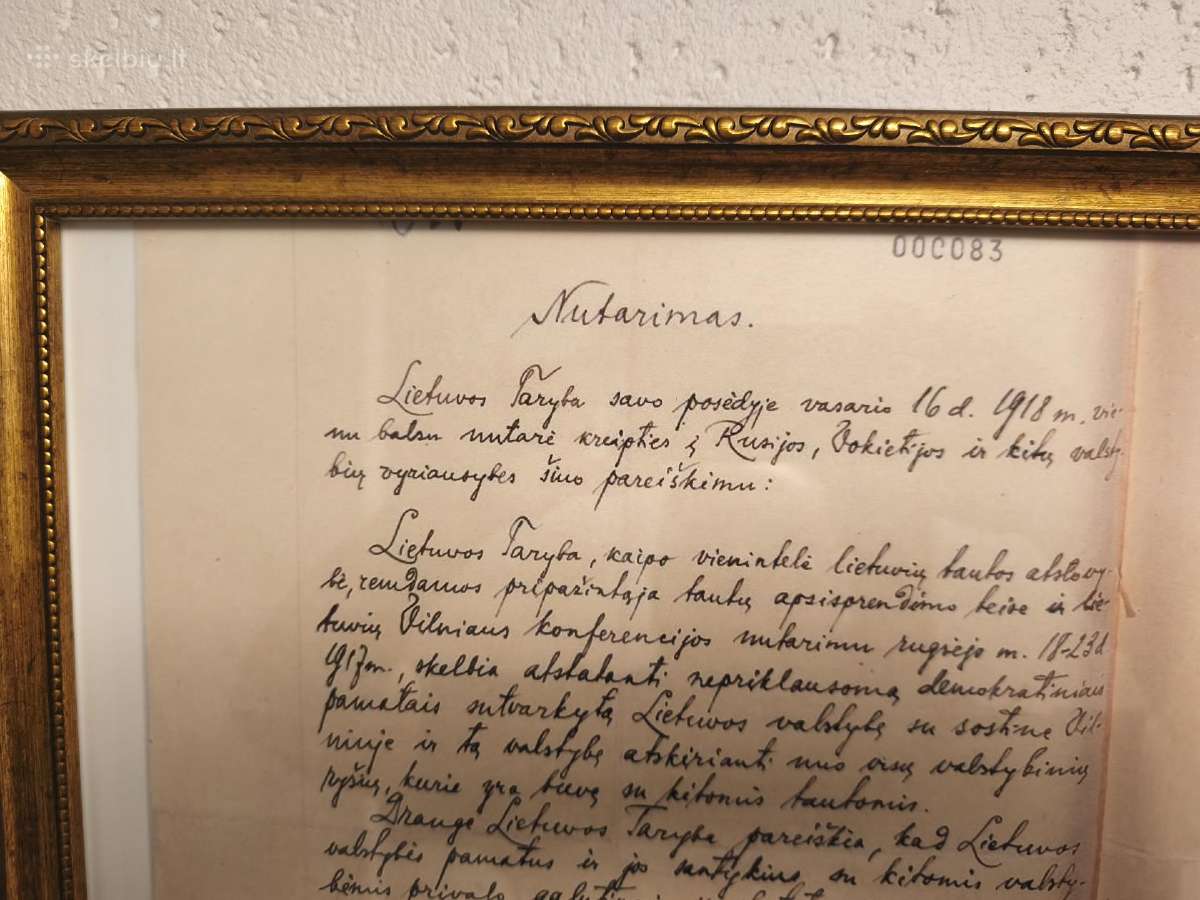 skelbiu.lt
000083
Nutarimas.
Lietuvos Taryba savo posėdyje vasario 16 d. 1918 m. vie-
nu balsu nutarė kreipties į Rusijos, Vokietijos ir kitų valsty-
bių vyriausybes šiuo pareiškimu:
Lietuvos Taryba, kaipo vienintelė lietuvių tautos atstovy-
bė, remdamos pripažintąja tautų apsisprendimo teise ir lie-
tuvių Vilniaus konferencijos nutarimu rugsėjo m. 18-23 d.
1917 m., skelbia atstatanti nepriklausomą demokratiniais
pamatais sutvarkytą Lietuvos valstybę su sostine Vil-
niuje ir tą valstybę atskirianti nuo visų valstybinių
ryšių, kurie yra buvę su kitomis tautomis.
Drauge Lietuvos Taryba pareiškia, kad Lietuvos
valstybės pamatus ir jos santykius su kitomis valsty-
bėmis privalo